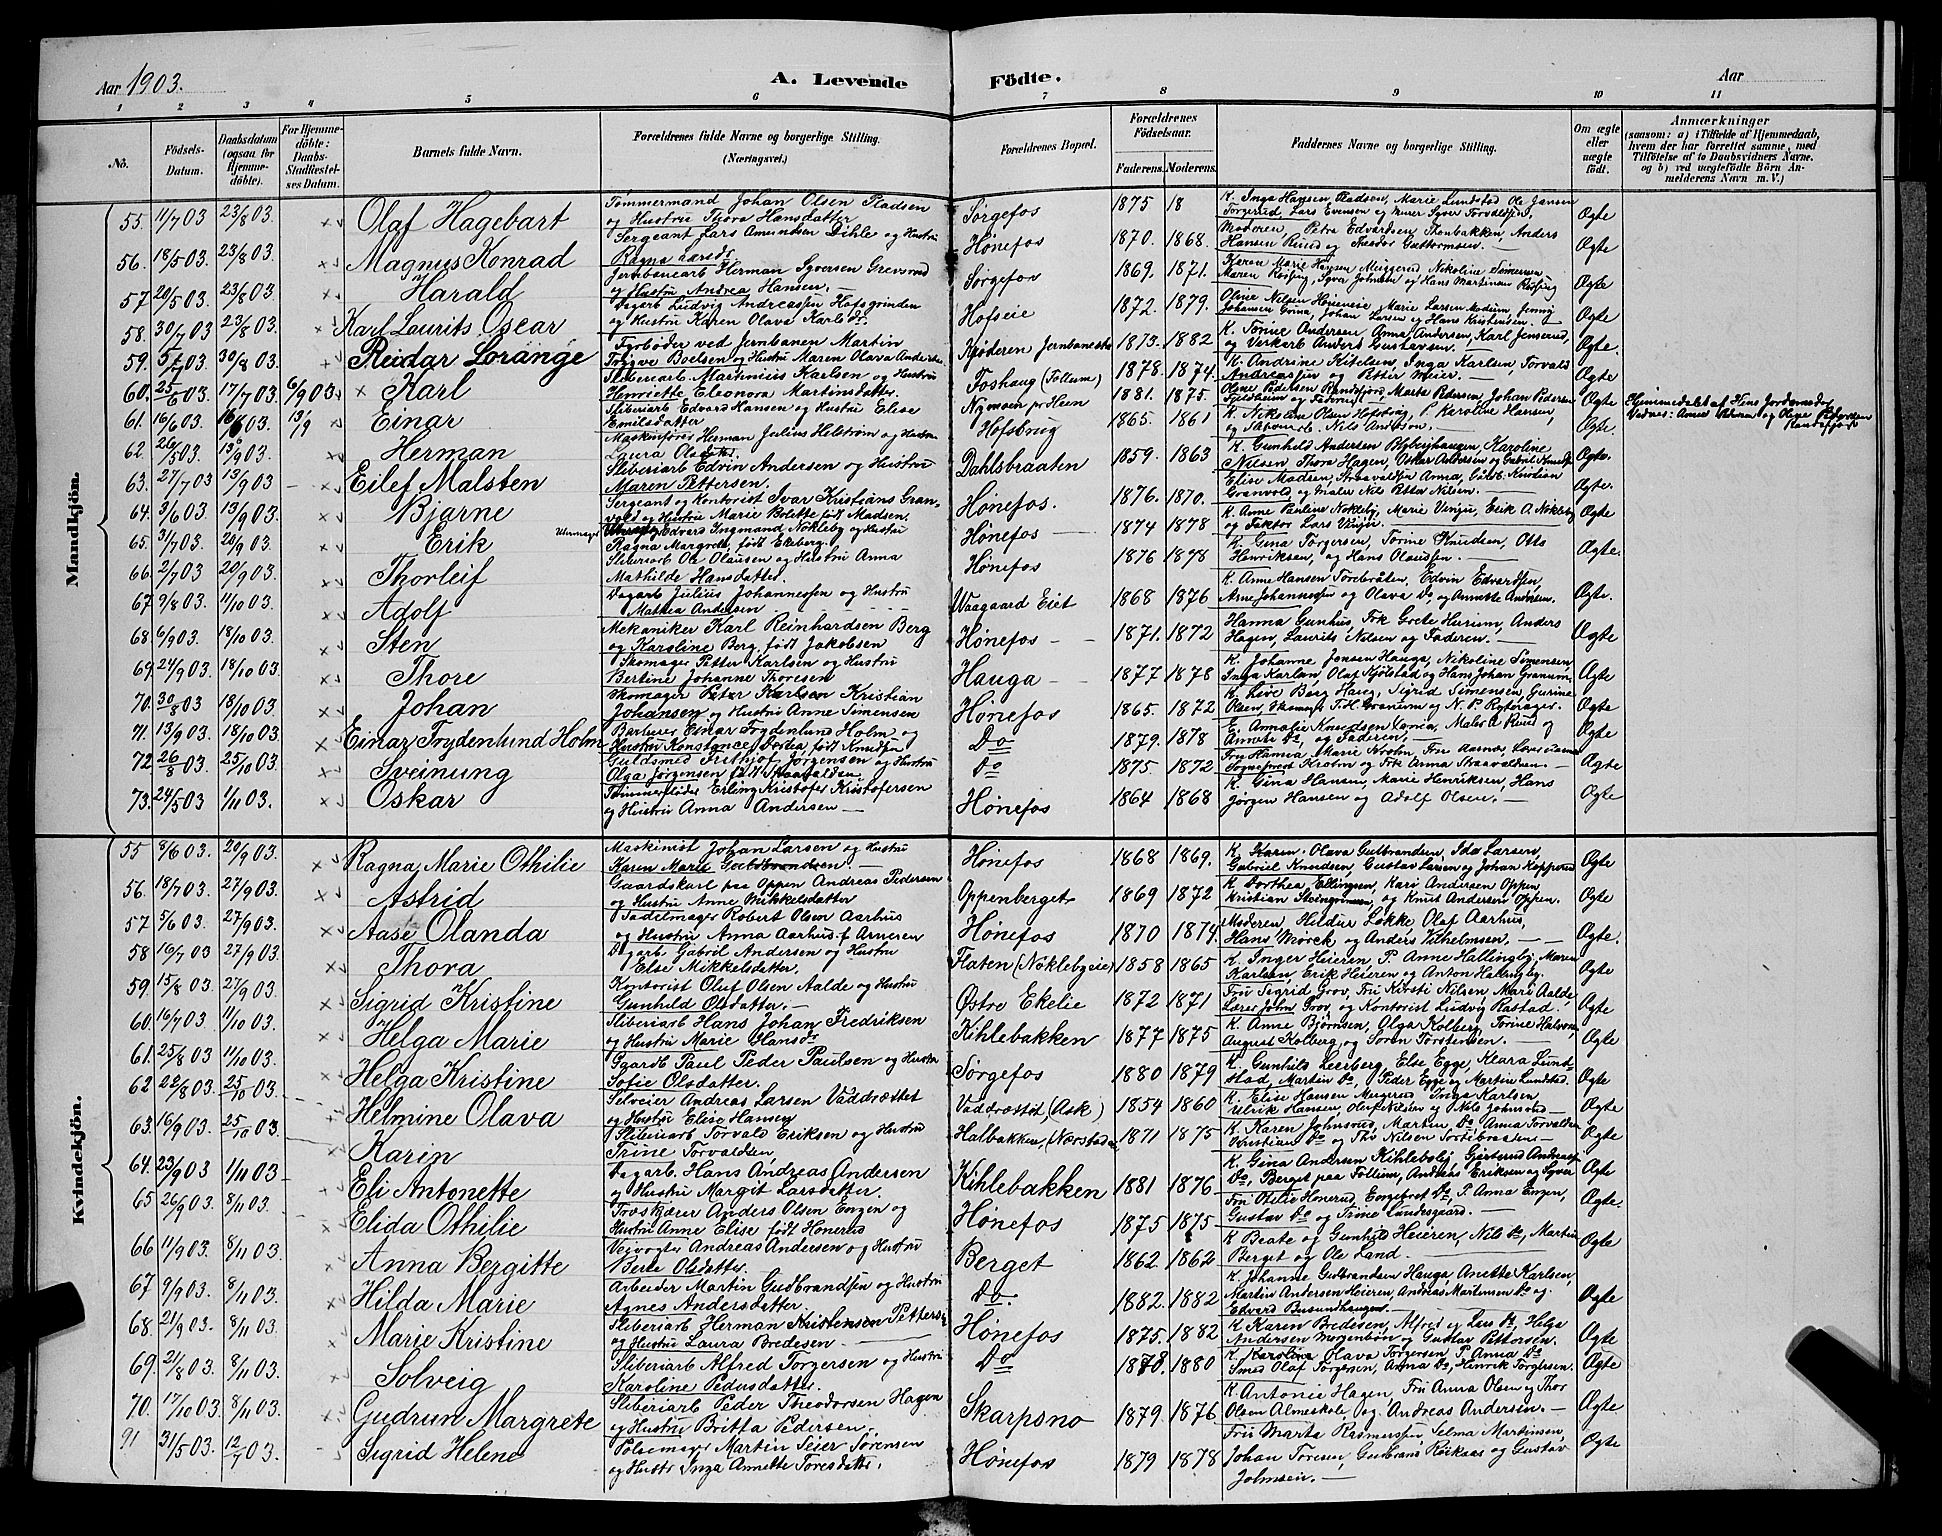 Aar 1903.
A. Levende Födte.
Aar
1 2 3 4 5 6 7 8 9 10 11
No.
Födsels-Datum.
Daabsdatum (ogsaa for Hjemme-döbte).
For Hjemme-döbte: Daabs-Stadfæstel-ses Datum.
Barnets fulde Navn.
Forældrenes fulde Navne og borgerlige Stilling. (Næringsvei.)
Forældrenes Bopæl.
Forældrenes Födselsaar.
Faderens. Moderens.
Faddernes Navne og borgerlige Stilling.
Om ægte eller uægte födt.
Anmærkninger (saasom: a) i Tilfælde af Hjemmedaab, hvem der har forrettet samme, med Tilföielse af to Daabsvidners Navne. og b) ved uægtefödte Börn An-melderens Navn m. V.)
Mandkjön.
55. 11/7 03 23/8 03. Olaf Hagebart Tømmermand Johan Olsen Pladsen og Hustru Thora Hansdatter Sørgefos 1875 18 Ægte
56. 18/5 03. 23/8 03. Magnus Konrad Sergeant Lars Amundsen Dihle og Hustru Ragna Larsd. Hønefos 1870. 1868. Moderen, Petra Edvardsen Thonbakken, Anders Hansen Ruud og Theodor Guttormsen. Ægte
57 20/5 03. 23/8 03. Harald Jernbanearb Herman Syversen Grevsrud og Hustru Andrea Hansen. Sørgefos 1869. 1871. Ægte
58. 30/7 03 23/8 03. Karl Laurits Oscar Dagarb Ludvig Andreassen Hofsgrinden og Hustru Karen Olava Karlsd. Hofseie 1872. 1879. Ægte
59. 03 30/8 03. Reidar Lorange Fyrbøder ved Jernbanen Martin Trygve Boelsen og Hustru Maren Olava Anders Kjøderen Jernbanesta 1873. 1882 K. Torine Andersen, Anna Andersen, Karl Jensrud og Verkarb Anders Gustavsen. Ægte.
60. 25/6 03. 17/7 03. 6/9 03. Karl Sliberiarb. Martinius Karlsen og Hustru Henriette Eleonora Martinsdatter. Foshaug (Follum) 1878. 1874. K. Andrine Kitelsen, Inga Karlsen Torvald Andreassen og Petter Meier. Ægte
61. 16/6 03. 03. 13/9 Einar Sliberiarb Edvard Hansen og Hustru Elise Emilsdatter Nymoen pr Heen 1881. 1875. Ægte Hjemmedøbt af
62. 20/5 03. 13/9 03. Herman Maskinfører Herman Julius Helstrøm og Hustru Laura Olsdtr. Hofsbrug 1865. 1861 K. Nikoline Olsen Hofsbrug, P. Karoline Hansen, Nils Anderson. Ægte.
63. 27/7 03 13/9 03. Eilef Malsten Sliberiarb Edvin Andersen og Hustru Maren Pettersen. Dahlsbraaten 1859. 1863 K. Gunhild Andersen Karoline Nilsen Thora Hagen, Oskar Andersen og Gabriel Knudsen Ægte.
64. 3/6 03. 13/9 03. Bjarne Sergeant og Kontorist Ivar Kristians Gran-vold og Hustru Marie Bolette født Madsen. Hønefos. 1876. 1870. Elise Madsen, Granvold og Maler Nils Petter Nilsen. Ægte.
65. 31/7 03. 20/9 03. Erik Uhrmager Edvard Ingmand Nøkleby og Hustru Ragna Margrete født Ekeberg. Hønefos 1874 1878 K. Anne Pauline Nøkleby, Marie Vinju, Erik A Nøkleby og Faktor Lars Vinju. Ægte
66. 2/7 03. 20/9 03. Thorleif Slibersarb Ole Olausen og Hustru Anna Mathilde Hansdatter. Hønefos 1876 1878 K. Gina Torgersen, Torine Knudsen, Otto Henriksen, og Hans Olausen. Ægte.
67 9/8 03. 11/10 03. Adolf Dagarb Julius Johannessen og Hustru Mathea Andersen Waagaard Eiet 1868 1876 K. Anne Hansen Torebråten, Edvin Edvardsen, Arne Johannessen og Olava Do, og Annette Andersen. Ægte.
68. 6/9 03. 18/10 03. Sten Mekaniker Karl Reinhardsen Berg og Karoline Berg, født Jakobsen Hønefos 1871. 1872 Hanna Gunhus, Frk Grete Hurum, Anders Hagen, Laurits Nilsen og Faderen. Ægte
69. 24/9 03. 18/10 03. Thore Skomager Petter Karlsen og Hustru Bertine Johanne Thoresen Hauga 1877 1878 K. Johanne Jensen Hauga, Nikoline Simensen, Inga Karlsen Olaf Kjølstad og Hans Johan Granum. Ægte
70. 30/8 03 18/10 03. Johan Skomager Peter Karlsen Kristian Johansen og Hustru Anne Simensen Hønefos 1865. 1872 K. Live Berg Haug, Sigrid Simensen, Gurine Olsen, Granum og N. P. Rytterager. Ægte
71. 13/9 03. 18/10 03. Einar Frydenlund Holm Barberer Einar Frydenlund Holm og Hustru Konstance Dortea, født Knudsen Do 1879. 1878 Ægte
72 26/8 03. 25/10 03. Sveinung Guldsmed Frithjof Jørgensen og Hustru Olga Jørgensen født Straavalden. Do 1875. 1872 Ægte
73. 24/5 03 1/11 03. Oskar Tømmerfløder Erling Kristofer Kristofersen og Hustru Anna Andersen Hønefos 1864 1868 K. Gina Hansen, Marie Henriksen, Hans Jørgen Hansen og Adolf Olsen. Ægte
Kvindekjön.
55 8/6 03. 20/9 03. Ragna Marie Othilie Maskinist Johan Larsen og Hustru Karen Marie Gudbrandsen Hønefos 1868 1869. K. Karen Olava Gulbrandsen, Ida Larsen, Gabriel Knudsen, Gustav Larsen og Johan Kopperud Ægte
56. 18/7 03. 27/9 03. Astrid Gaardskarl paa Oppen Andreas Pedersen og Hustru Anne Mikkelsdatter Oppenberget 1869 1872 K. Dorthea Ellingsen, Kari Andersen Oppen, Kristian Steingrimsen, og Knut Andersen Oppen. Ægte
57 5/6 03. 27/9 03. Aase Olanda Sadelmager Robert Olsen Aarhus og Hustru Anna Aarhus f. Arnesen Hønefos 1870 1874. Moderen, Hildur Løkke, Olaf Aarhus, Hans Mørck og Anders Vilhelmsen. Ægte.
58 16/7 03 27/9 03. Thora Dagarb Gabriel Andersen og Hustru Else Mikkelsdatter. Flaten (Nøklebyeie) 1858 1865 K. Inger Heieren P. Anne Hallingby, Maren Karlsen, Erik Heieren og Anton Hallingby. Ægte
59. 15/8 03. 27/9 03. Sigrid Kristine Kontorist Oluf Olsen Aalde og Hustru Gunhild Olsdatter. Østre Ekelie 1872 1871 Fru Sigrid Grov, Fru Kirsti Nilsen Mari Aalde, Lærer John Grov, og Kontorist Ludvig Rastad. Ægte
60. 16/7 03. 11/10 03. Helga Marie Sliberiarb Hans Johan Fredriksen og Hustru Marie Olansd. Kihlebakken 1877 1875 K. Anne Bjørnsen, Olga Kolberg, Torine Halvors, August Kolberg og Søren Torstensen. Ægte
61. 25/8 03. 11/10 03. Helga Kristine Gaardb Paul Peder Paulsen og Hustru Sofie Olsdatter. Sørgefos 1880 1879 K. Gunhild Leerberg, Else Egge, Klara Lund-stad, Martin Do, Peder Egge og Martin Lundstad. Ægte
62 22/8 03. 25/10 03. Helmine Olava Selveier Andreas Larsen Vaddrættet og Hustru Elise Hansen Vaddræstet, (Ask) 1854 1860 K. Elise Hansen Muggerud Inga Karlsen Ulrik Hansen, Oluf Nilsen og P. Nils Johnsrud Ægte
63. 16/9 03. 25/10 03. Karin Sliberiarb Torvald Eriksen og Hustru Trine Torvaldsen Halbakken, Nærstad 1871 1875 K. Karen Johnsrud, Martin Do Anna Torvaldsen Kristian Do og Ths Nilsen Tortebraaten Ægte
64. 23/9 03 1/11 03. Eli Antonette Dagarb. Hans Andreas Andersen og Hustru Margit Larsdatter. Kihlebakken 1881 1876 K. Gina Andersen Kihlebolig, Gjertrud Andreas Do, Berget paa Follum, Andreas Eriksen og Syver Ægte
65 26/9 03. 8/11 03. Elida Othilie Træskjærer Anders Olsen Engen og Hustru Anne Elise født Honerud Hønefos 1875 1875 Fru Otelie Honerud, Engebret Do, P. Anna Engen, Gustav Do og Trine Lundesgaard. Ægte
66 11/9 03. 8/11 03. Anna Bergitte Veivogter Andreas Andersen og Hustru Berte Olsdatter. Berget 1862 1862 K Beate og Gunhild Heieren, Nils Do, Martin Berget og Ole Land. Ægte
67 9/9 03. 8/11 03. Hilda Marie Arbeider Martin Gudbrandsen og Hustru Agnes Andersdatter. Do. 1882. 1882 K. Johanne Gulbrandsen Hauga, Anette Karlsen, Martin Andersen Heieren, Andreas Martinsen Do og Edvard Busundhaugen. Ægte
68. 21/9 03. 8/11 03. Marie Kristine Sliberiarb Herman Kristensen Pettersen og Hustru Laura Bredesen Hønefos 1875. 1882 K. Karen Bredesen, Alfred og Lars Do, Helga Andersen Morgenbøn og Gustav Pettersen. Ægte
69. 2/8 03. 8/11 03. Solveig Sliberiarb Alfred Torgersen og Hustru Karoline Pedersdatter. Do 1878. 1880 K. Karoline Olava Torgersen, P. Anna Do Smed Olaf Torgersen, Anna Do, Henrik Torgersen. Ægte
70. 17/10 03. 8/11 03. Gudrun Margrete Slibersarb Peder Theodorsen Hagen og Hustru Britta Pedersen. Skarpsno 1879. 1876 K. Antonie Hagen, Fru Anna Olsen og Thor Olsen Almeskole, og Andreas Andersen. Ægte
91 31/5 03. 12/7 03. Sigrid Helene Pølsemager Martin Peier Sørensen og Hustr Inga Annette Toresdatter. Hønefos 1879 1878 Fru Marta Rasmussen, Selma Martinsen, Johan Toresen, Gulbrand Røikaas og Gustav Johnsen. Ægte